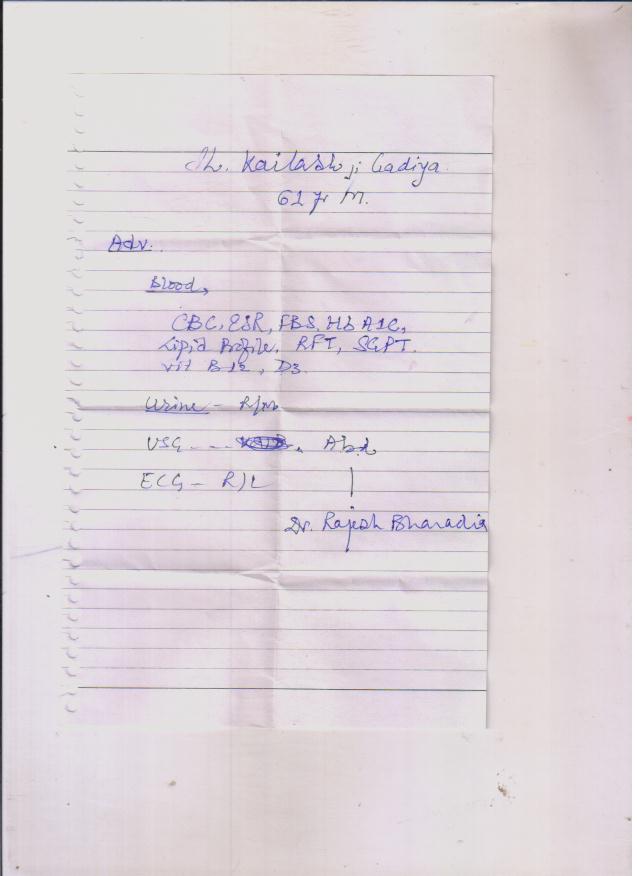 Sh. Kailash ji Gadiya.
61 yr M.
Adv.
Blood,
CBC, ESR, FBS, Hb A1C,
Lipid Profile, RFT, SGPT.
vit B-12, D3.
Urine - R/m
USG - - - Abd
ECG - R/L
Dr. Rajesh Bharadia